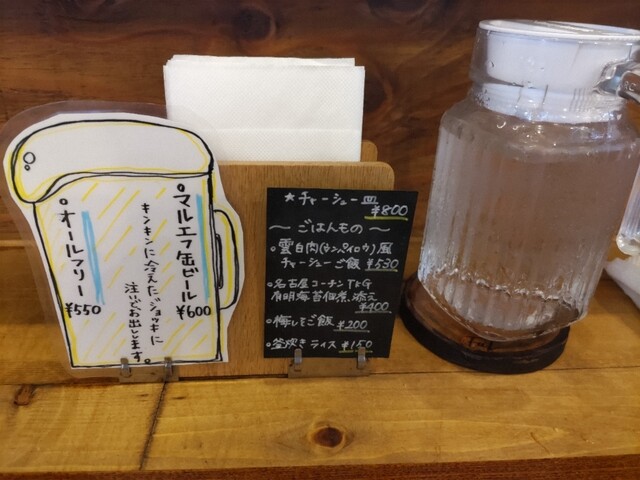 ・マルエフ缶ビール
¥600
キンキンに冷えたジョッキに
注いでお出しします。
・オールフリー
¥550
★チャーシュー皿
¥800
〜ごはんもの〜
・雲白肉(ウンパイロウ)風
チャーシューご飯 ¥530
・名古屋コーチンTKG
有明海苔佃煮添え
¥400
・梅しそご飯 ¥200
・釜炊きライス ¥150